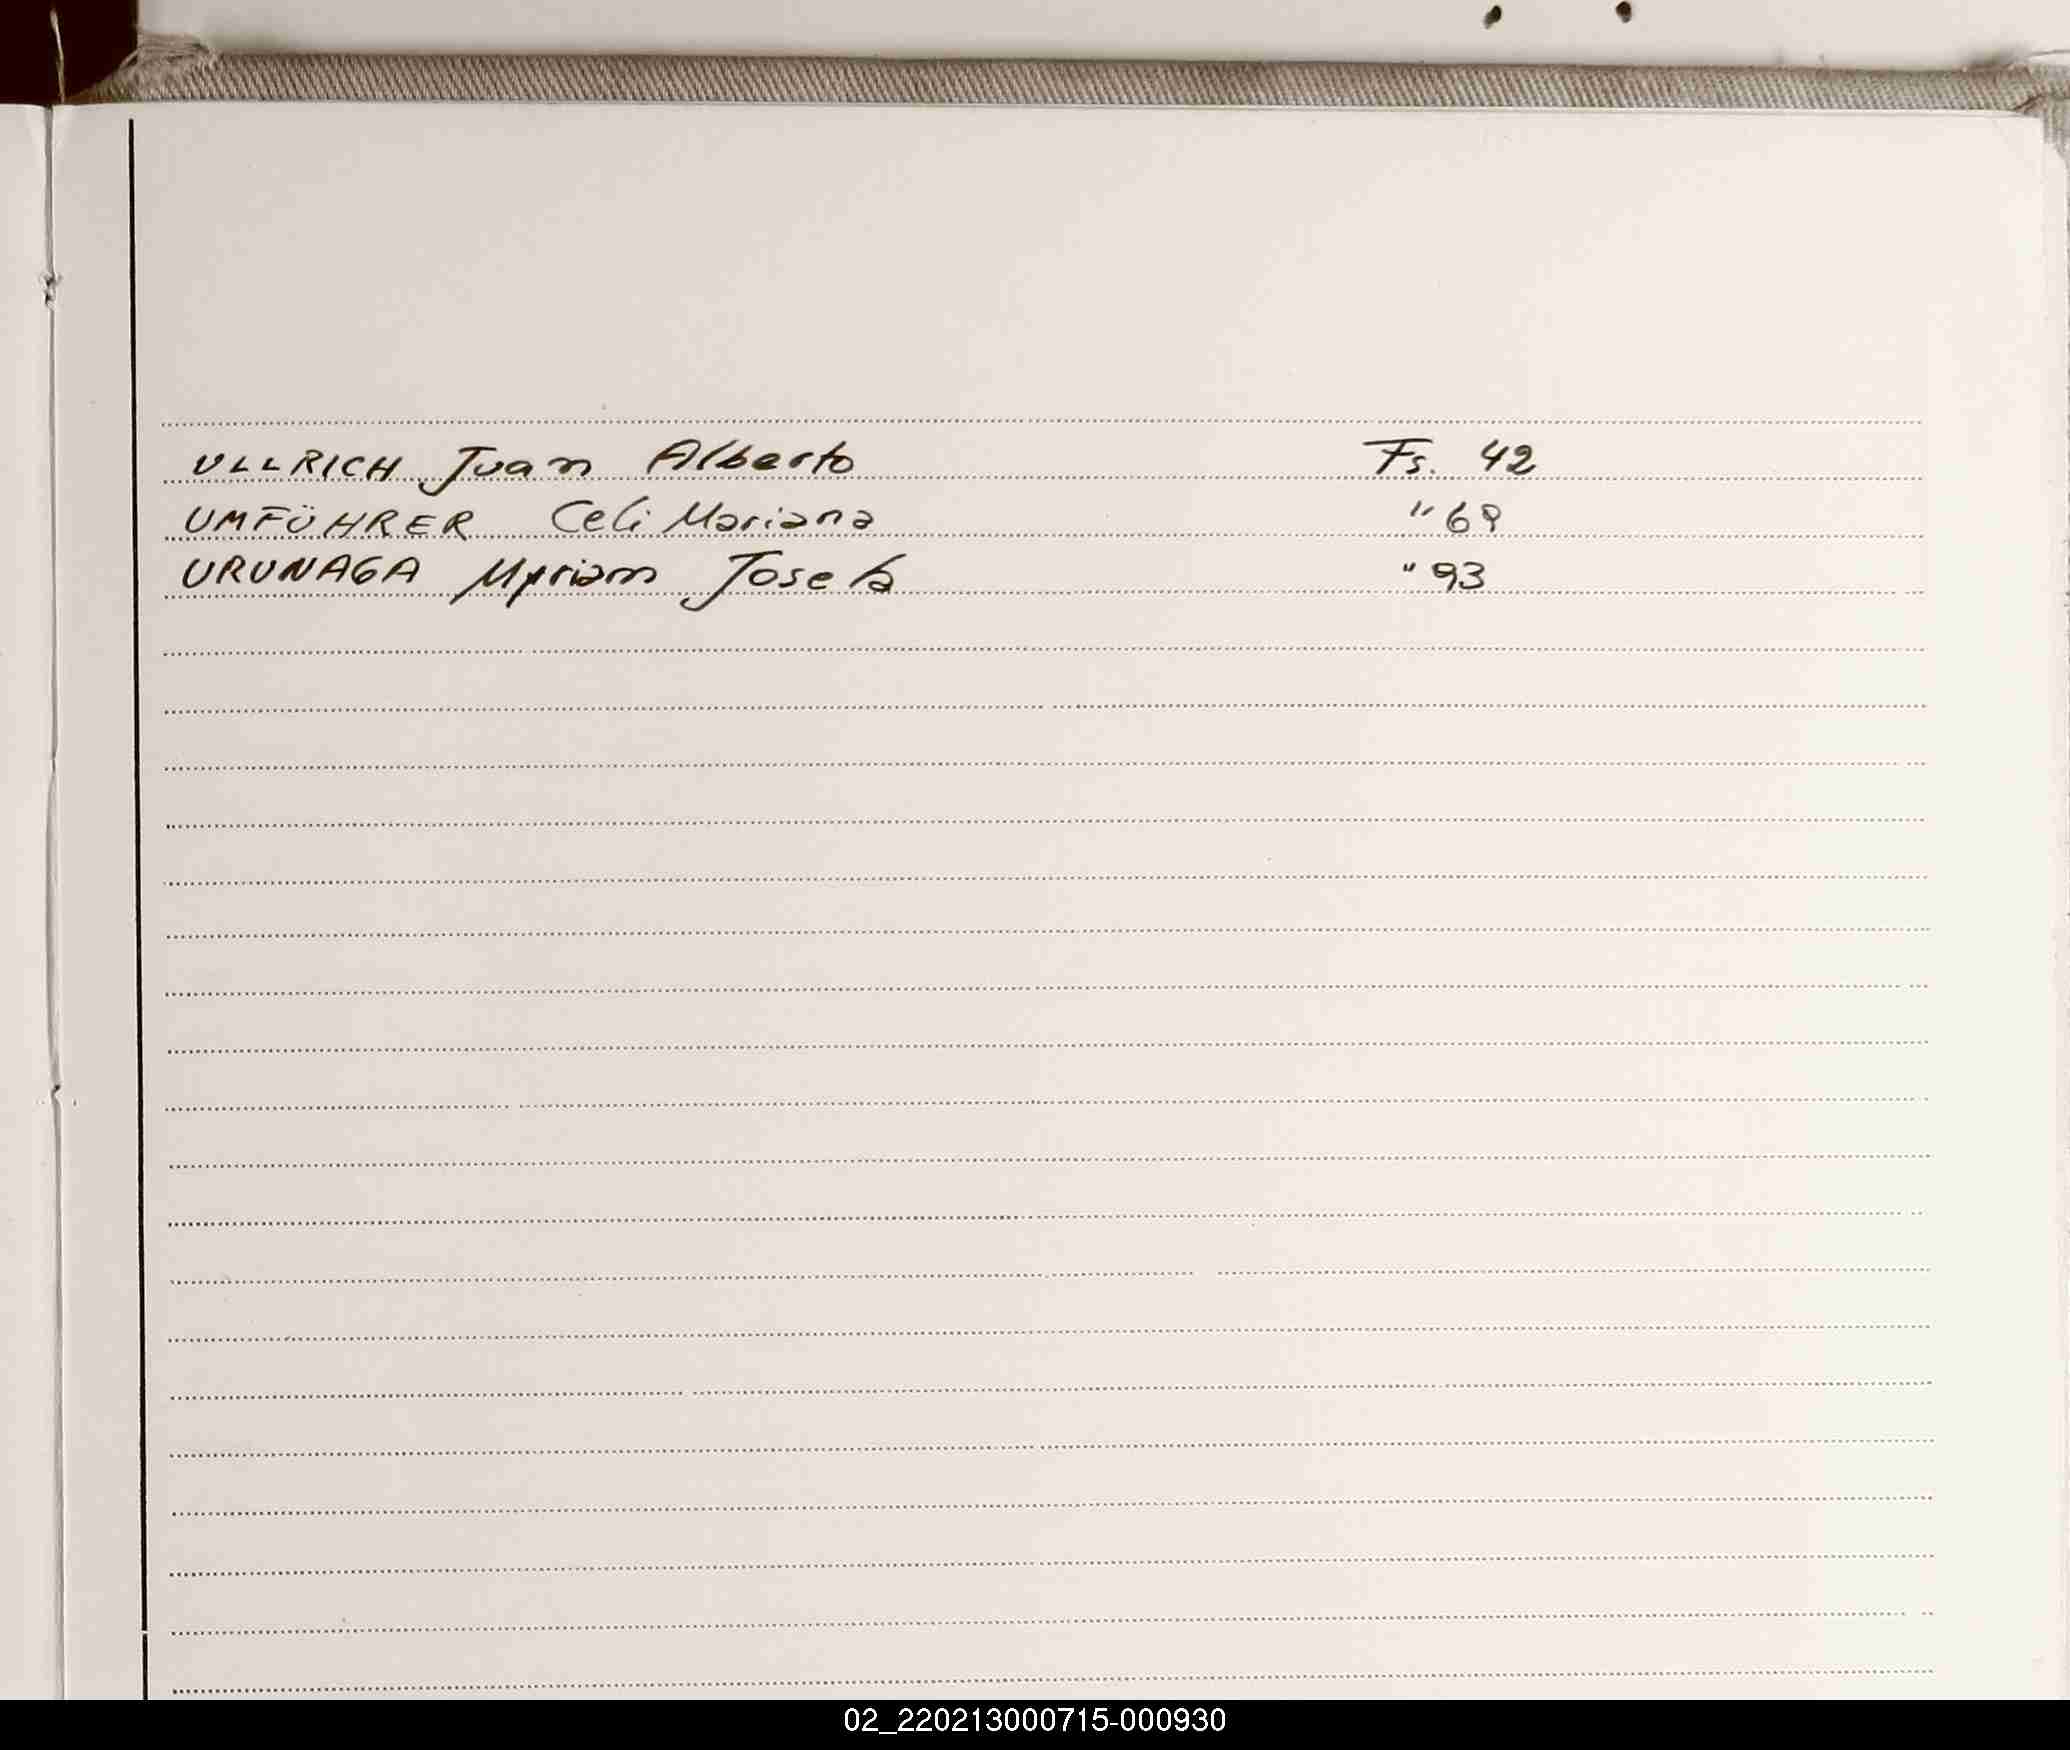 ULLRICH Juan Alberto Fs. 42
UMFÜHRER Celi Mariana " 69
URUNAGA Myriam Josefa " 93
02_220213000715-000930